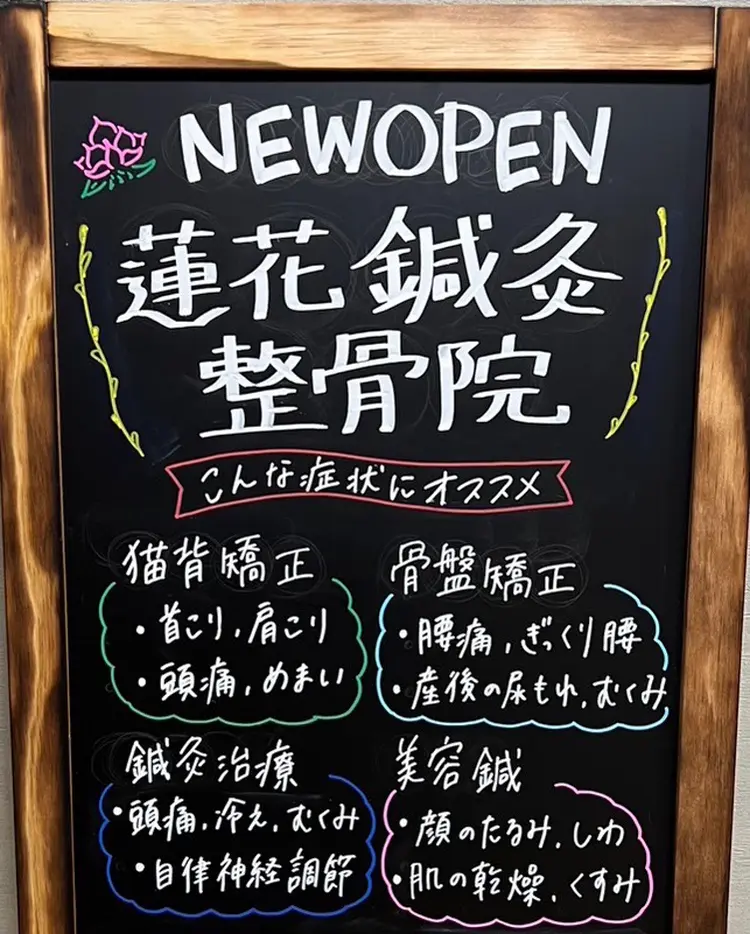 NEWOPEN
蓮花鍼灸
整骨院
こんな症状にオススメ
猫背矯正
・首こり,肩こり
・頭痛,めまい
骨盤矯正
・腰痛,ぎっくり腰
・産後の尿もれ,むくみ
鍼灸治療
・頭痛,冷え,むくみ
・自律神経調節
美容鍼
・顔のたるみ,しわ
・肌の乾燥,くすみ